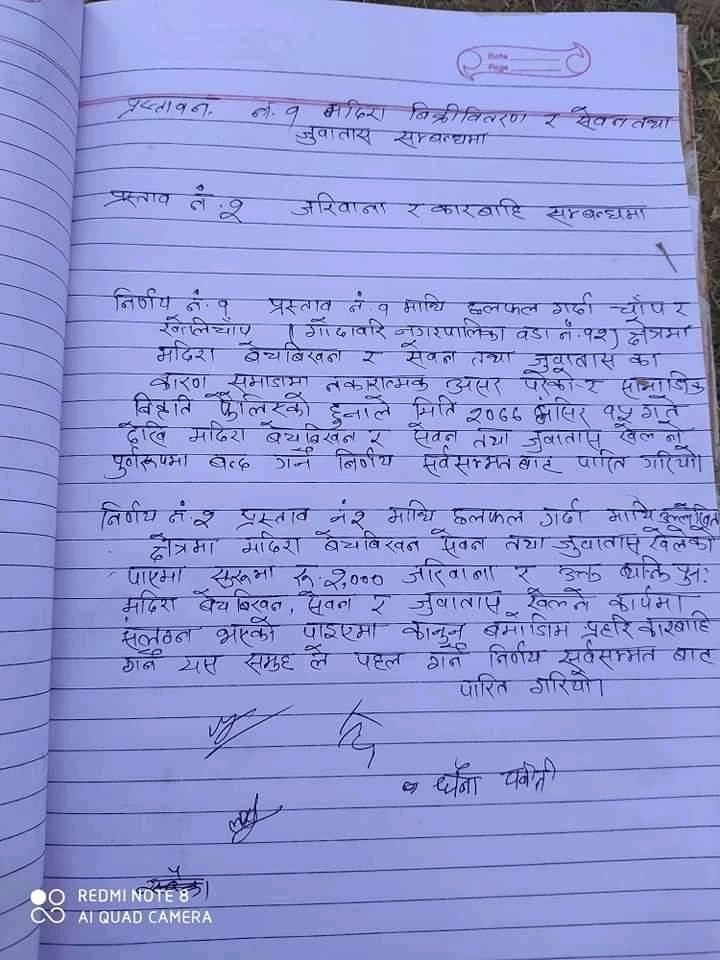 Date
Page
प्रस्तावन. नं.१ मदिरा बिक्रीवितरण र सेवन तथा
जुवातास सम्बन्धमा
प्रस्ताव नं.२ जरिवाना र कारबाहि सम्बन्धमा
निर्णय नं.१ प्रस्ताव नं.१ माथि छलफल गर्दा चाँप र
(गोदावरि नगरपालिका वडा नं.१२) क्षेत्रमा
मदिरा बेचबिखन र सेवन तथा जुवातास का
कारण समाजमा नकारात्मक असर परेको र सामाजिक
फैलिएको हुनाले मिति २०७७ मंसिर १५ गते
देखि मदिरा बेचबिखन र सेवन तथा जुवातास खेल्न
पुर्णरूपमा बन्द गर्ने निर्णय सर्वसम्मत बाट पारित गरियो।
निर्णय नं.२ प्रस्ताव नं२ माथि छलफल गर्दा माथि उल्लेखित
क्षेत्रमा मदिरा बेचबिखन सेवन तथा जुवातास खेलेको
पाएमा सुरूमा रू.२,००० जरिवाना र उक्त ब्यक्ति पुन:
मदिरा बेचबिखन, सेवन र जुवातास खेल्ने कार्यमा
संलग्न भएको पाइएमा कानुन बमोजिम प्रहरि कारबाहि
गर्न यस समुह ले पहल गर्ने निर्णय सर्वसम्मत बाट
पारित गरियो।
REDMI NOTE 8
AI QUAD CAMERA